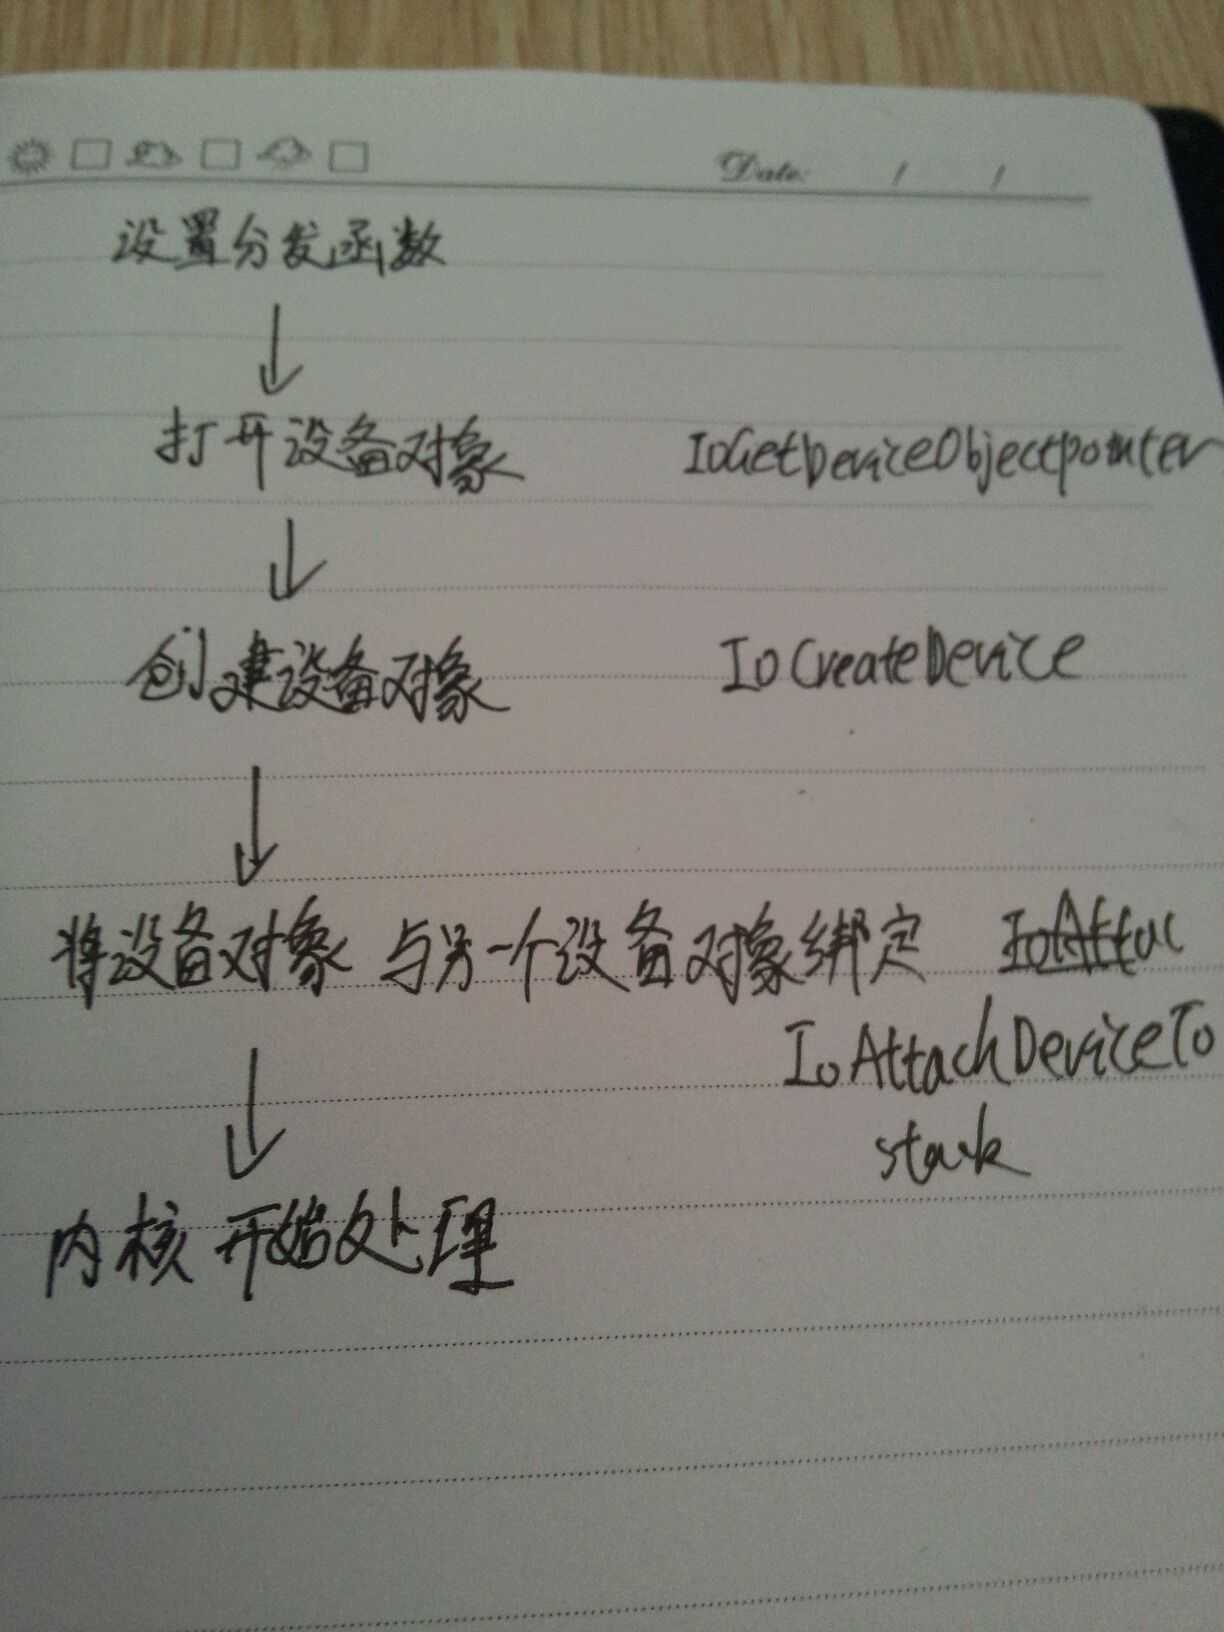 Date: / /
设置分发函数
↓
打开设备对象 IoGetDeviceObjectpointer
↓
创建设备对象 IoCreateDevice
↓
将设备对象 与另一个设备对象绑定 IoAttac
IoAttachDeviceTo
stack
↓
内核开始处理